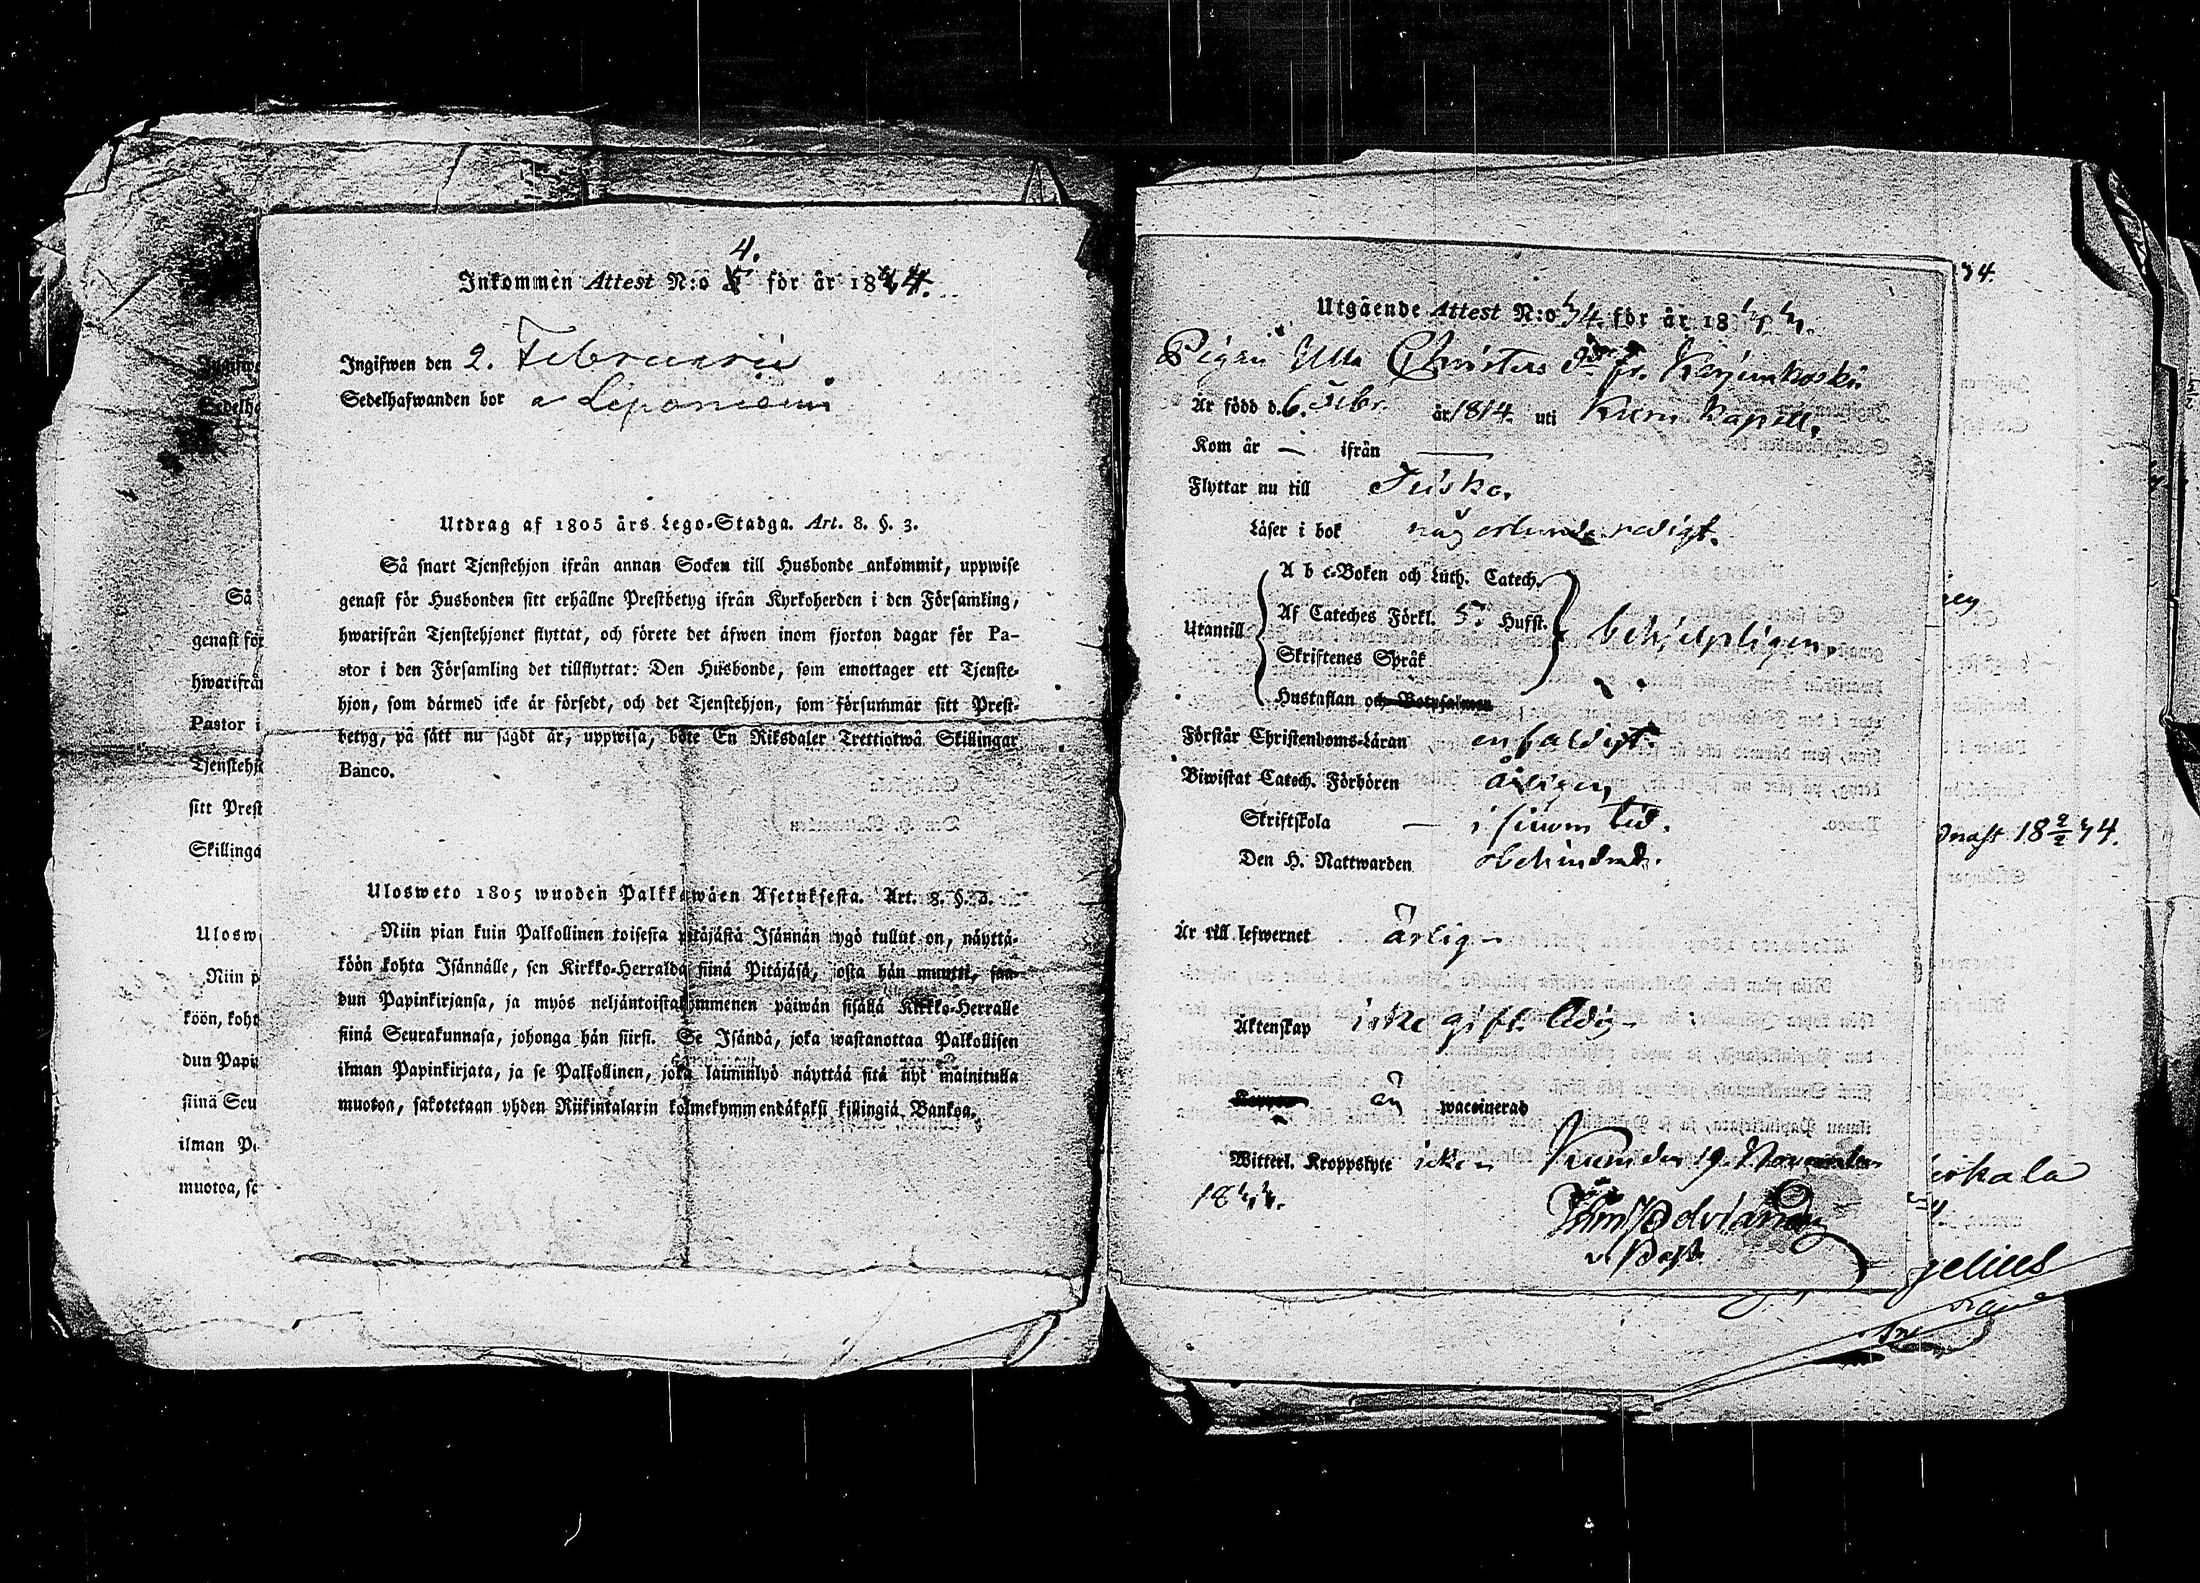 4.
Inkommen Attest N:o 5 för år 1844.
Ingifwen den 2. Februarii
Sedelhafwanden bor a Leponiemi
Utdrag af 1805 års Lego-Stadga. Art. 8. §. 3.
Så snart Tjenstehjon ifrån annan Socken till Husbonde ankommit, uppwise
genast för Husbonden sitt erhållne Prestbetyg ifrån Kyrkoherden i den Församling,
hwarifrån Tjenstehjonet flyttat, och förete det äfwen inom fjorton dagar för Pa-
stor i den Församling det tillflyttat: Den Husbonde, som emottager ett Tjenste-
hjon, som därmed icke är försedt, och det Tjenstehjon, som försummar sitt Prest-
betyg, på sätt nu sagdt är, uppwisa, böte En Riksdaler Trettiotwå Skillingar
Banco.
Ulosweto 1805 wuoden Palkkawäen Asetuksesta. Art. 8. §. 3.
Niin pian kuin Palkollinen toisesta pitäjästä Isännän tygö tullut on, näyttä-
köön kohta Isännälle, sen Kirkko-Herralda siinä Pitäjäsä, josta hän muutti, saa-
dun Papinkirjansa, ja myös neljäntoistakymmenen päiwän sisällä Kirkko-Herralle
siinä Seurakunnasa, johonga hän siirsi. Se Isändä, joka wastanottaa Palkollisen
ilman Papinkirjata, ja se Palkollinen, joka laiminlyö näyttää sitä nyt mainitulla
muotoa, sakotetaan yhden Riikintalarin kolmekymmendäkaksi killingiä Bankoa.
Så
genast för
hwarifrån
Pastor i
Tjensteh
sitt Prest
Skillinga
Ulosw
Niin p
köön, koht
dun Papi
siinä Seu
ilman Pa
muotoa, sa
Utgående Attest N:o 44. för år 1844.
Pigan Ulla Christers dr fr. Karjunkoski
Är född d. 6. Febr. år 1814. uti Kuru Kapell.
Kom år — ifrån —
Flyttar nu till Teisko.
Läser i bok någorlunda redigt.
A b c-Boken och Luth. Catech.
Utantill Af Cateches Förkl. 5. Hufst. behjelpligen.
Skriftenes Språk
Hustaflan och Botpsalmen
Förstår Christendoms-Läran enfaldigt.
Biwistat Catech. Förhören årligen
Skriftskola — i sinom tid.
Den H. Nattwarden obehindrad.
Är till lefwernet ärlig
Äktenskap icke gift. ledig
är waccinerad
Witterl. Kroppslyte icke Kuru den 19. November
1844.
v. Past.
34.
18 2/2 44.